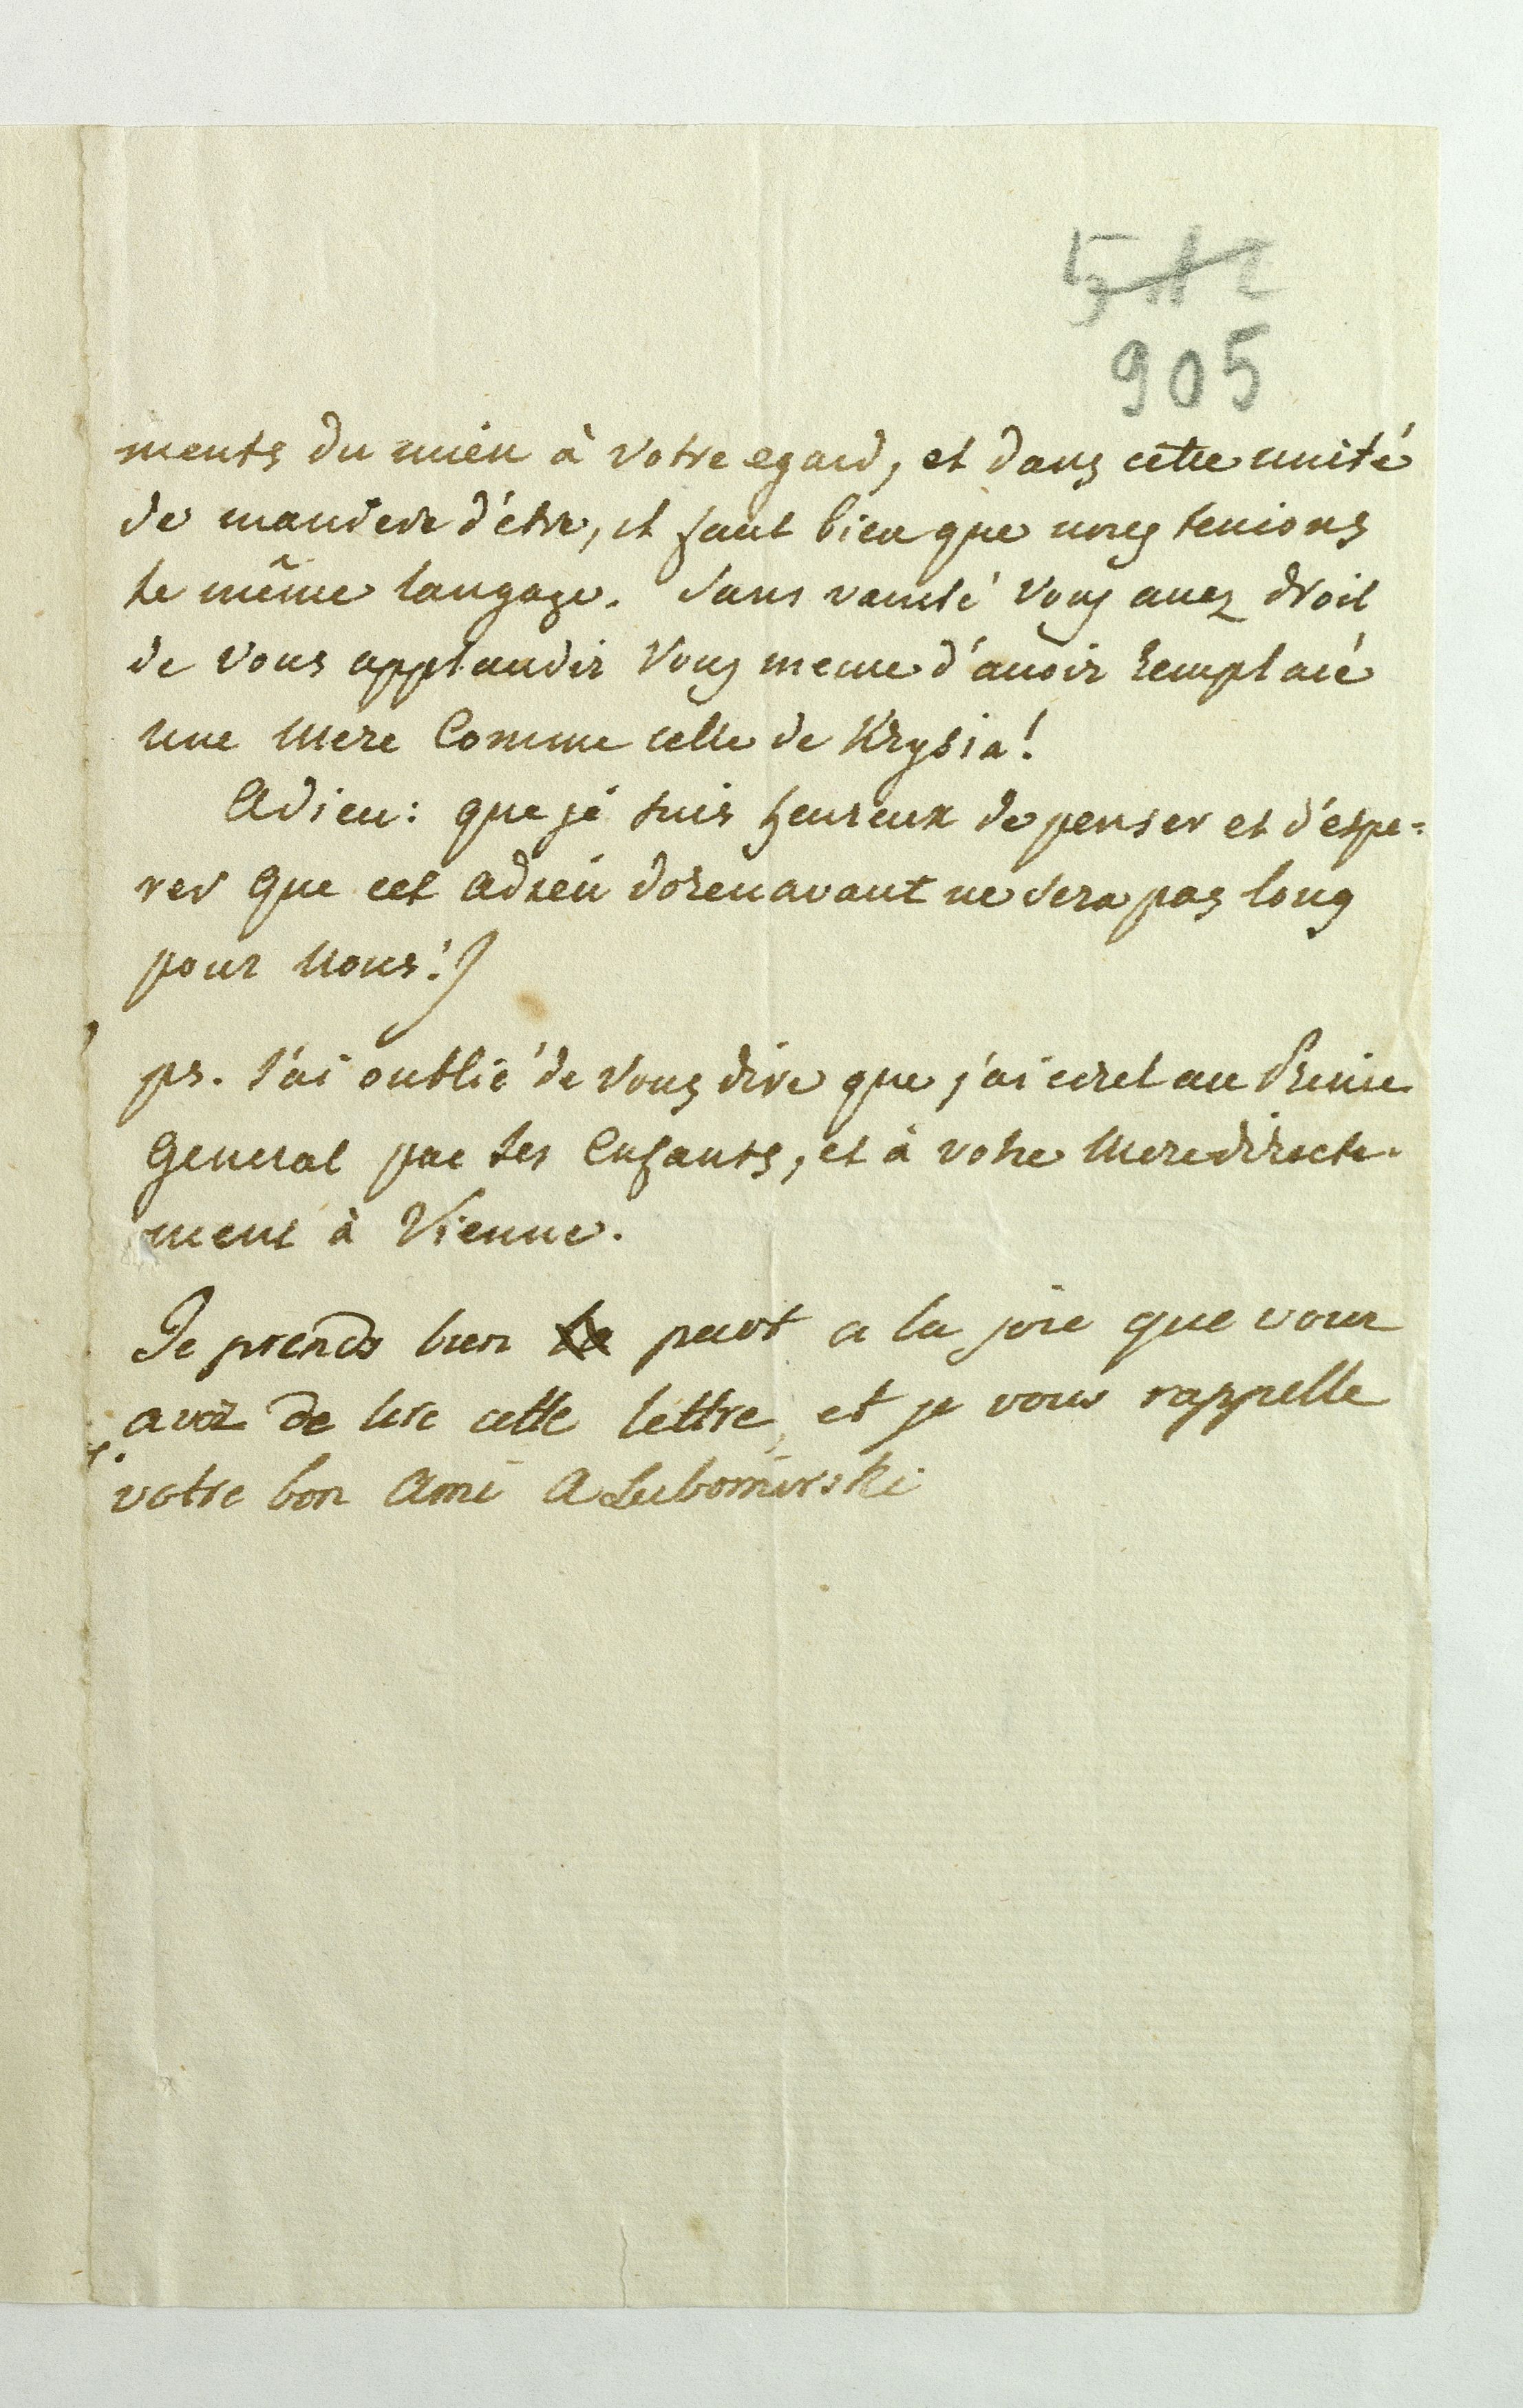 512
905
ments du mien à votre egard, et dans cette unité
de maniere d'être, il faut bien que nous tenions
le même langage. Sans vanité vous avez droit
de vous applaudir vous meme d'avoir remplacé
une Mere Comme celle de Krysia!
Adieu: que je suis heureux de penser et d'éspe=
rer que cet adieu dorenavant ne sera pas long
pour Nous!
ps. J'ai oublié de vous dire que j'ai ecret au Prince
General par ses Enfants, et à votre Mere directe-
ment à Vienne.
Je prends bien part a la joie que vous
avez de lire cette lettre, et je vous rappelle
votre bon Ami A Lubomirski